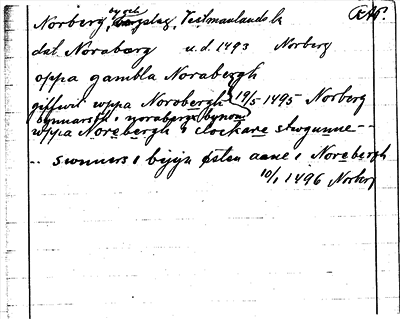 Norberg, by och bergslag, Västmanlands l. RAP.
dat. Noraberg u.d. 1493 Norberg
oppa gambla Norabergh
giffwit uppa Norobergh 19/5 1495 Norberg
bynnarsfk i noraberx bynom
uppa Norebergh i clockare stwgunne --
-- swnners i byjn østen aane i Norebergh
10/1 1496 Norberg